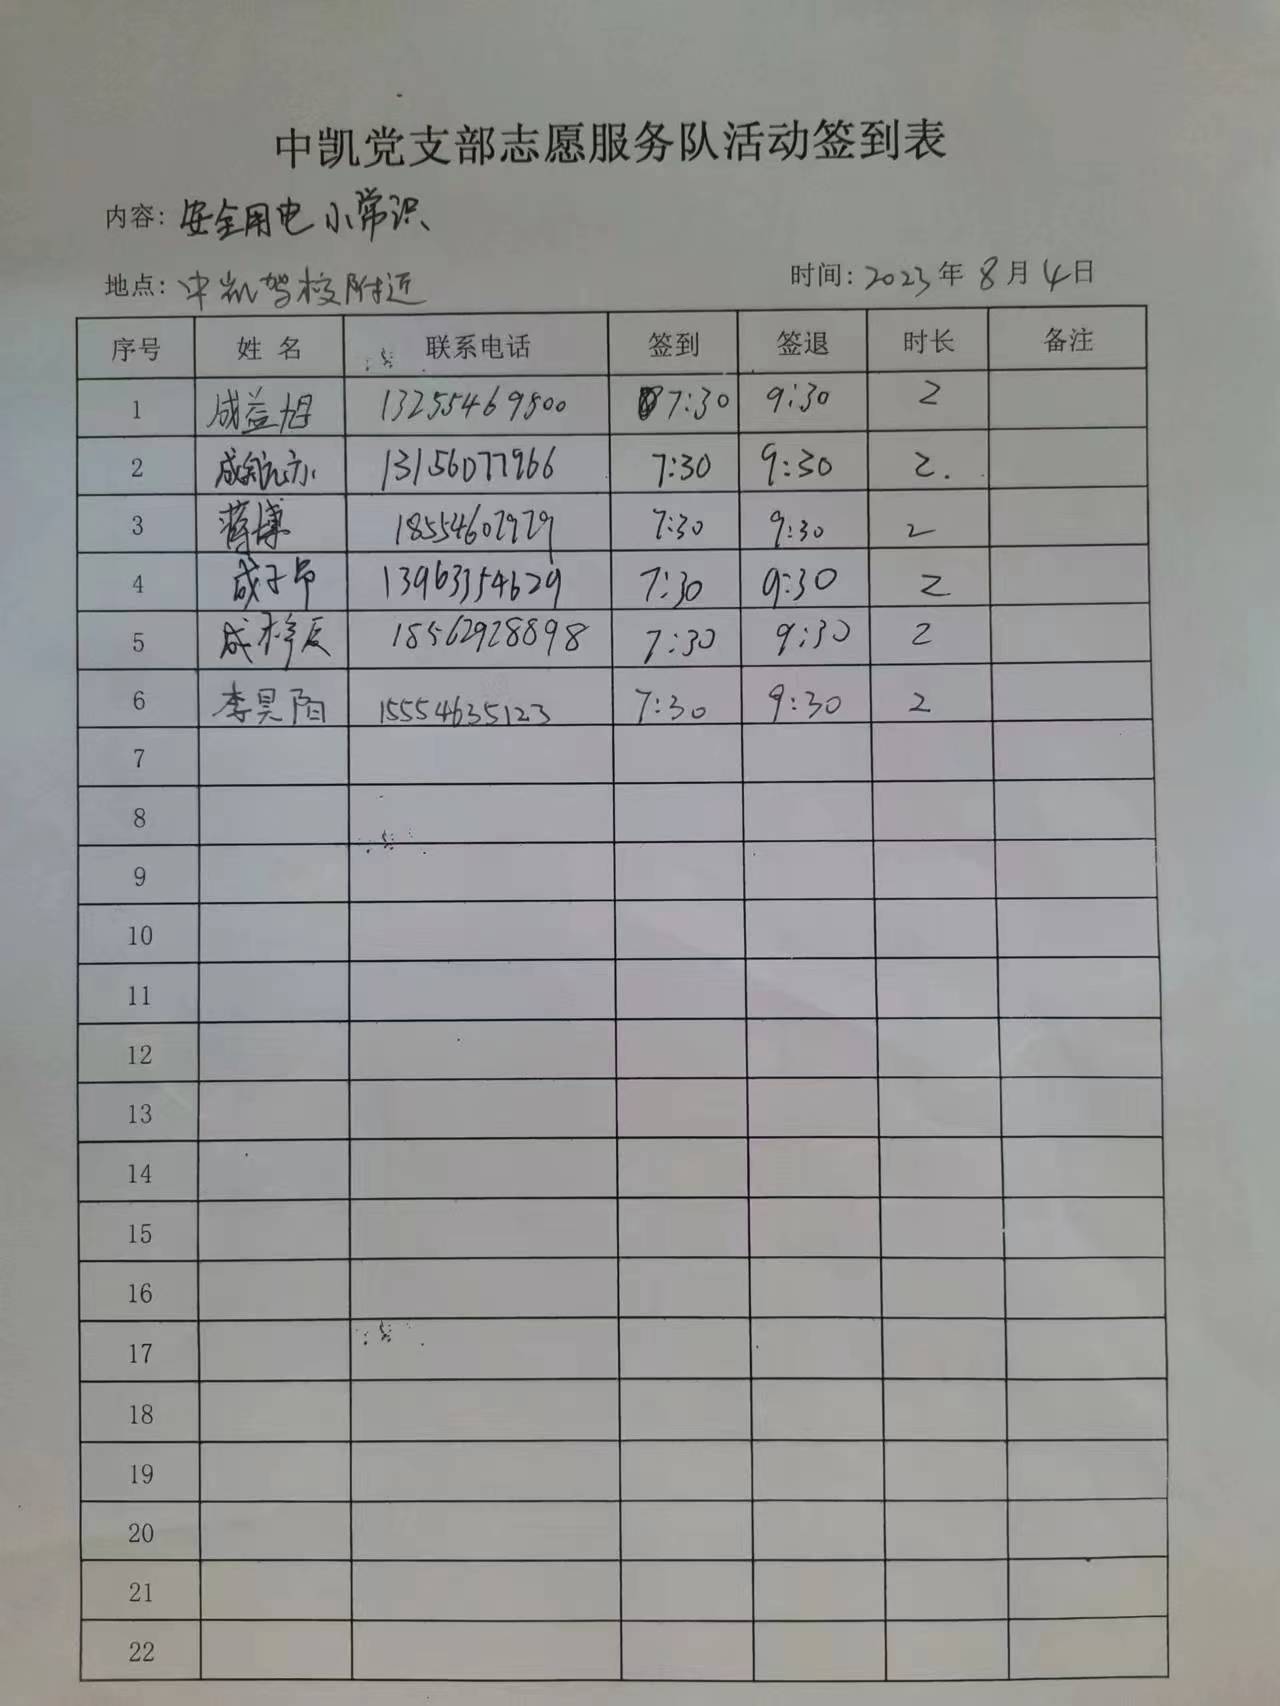 中凯党支部志愿服务队活动签到表
内容：安全用电小常识
地点：中凯驾校附近 时间：2023年8月4日
序号 姓名 联系电话 签到 签退 时长 备注
1 成益旭 13255469800 7:30 9:30 2
2 成航亦 13156077966 7:30 9:30 2.
3 蒋博 18554607979 7:30 9:30 2
4 成子昂 13963354629 7:30 9:30 2
5 成 18562928898 7:30 9:30 2
6 李昊阳 15554635123 7:30 9:30 2
7
8
9
10
11
12
13
14
15
16
17
18
19
20
21
22